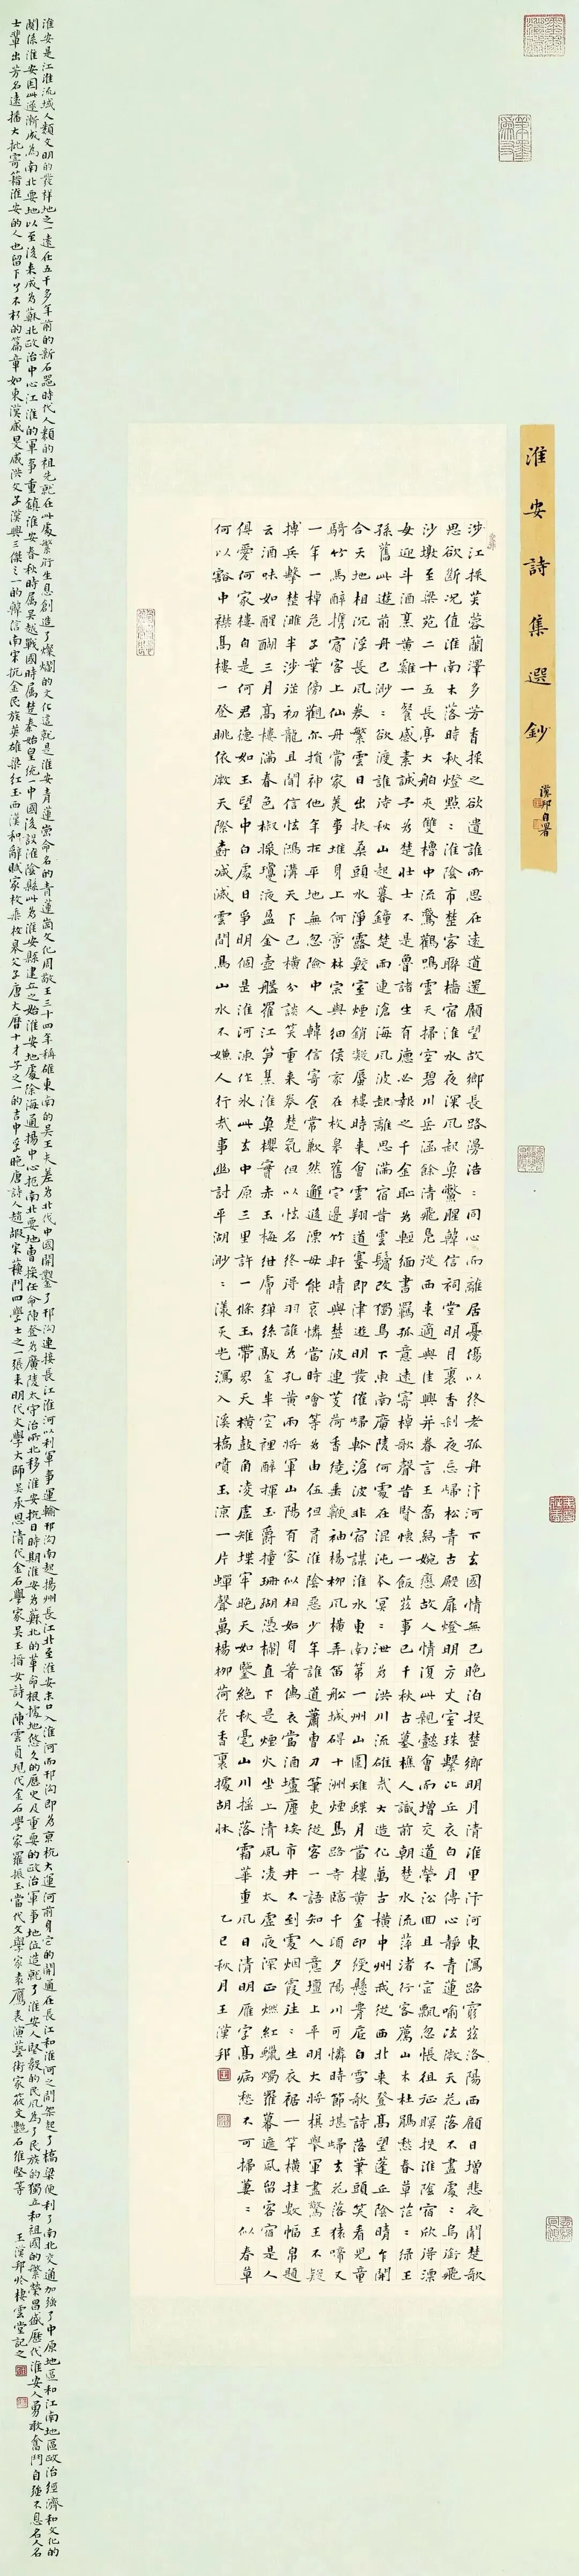 淮安詩集選鈔 漢邦自署
涉江採芙蓉蘭澤多芳香採之欲遺誰所思在遠道還顧望故鄉長路漫浩：同心而離居憂傷以終老孤舟汴河下去國情無已晚泊投楚鄉明月清淮里汴河東瀉路窮茲洛陽西顧日增悲夜聞楚歌
思欲斷況值淮南木落時秋燈點：淮陰市楚客聯檣宿淮水夜深風起魚鱉腥韓信祠堂明月裏香剎夜忘歸松青古殿扉燈明方丈室珠繫比丘衣白月傳心靜青蓮喻法微天花落不盡處：鳥銜飛
沙墩至梁苑二十五長亭大舶夾雙櫓中流鵞鸛鳴雲天掃空碧川岳涵餘清飛鳧從西來適與佳興并眷言王喬舄婉戀故人情復此親懿會而增交道榮沿洄且不定飄忽悵徂征暝投淮陰宿欣得漂
母迎斗酒烹黃雞一餐感素誠予為楚壯士不是魯諸生有德必報之千金恥為輕緬書羈孤意遠寄棹歌聲昔賢懷一飯茲事已千秋古墓樵人識前朝楚水流萍渚行客薦山木杜鵑愁春草茫：綠王
孫舊此遊前舟已渺：欲渡誰待秋山起暮鐘楚雨連滄海風波起離思滿宿昔雲鬢改獨鳥下東南廣陵何處在混沌本冥：泄為洪川流雄哉大造化萬古橫中州我從西北來登高望蓬丘陰晴乍開
合天地相沉浮長風卷繁雲日出扶桑頭水淨露鮫室煙銷凝蜃樓時來會雲翔道蹇即津遊明發催歸軫滄波非宿謀淮水東南第一州山圍雉堞月當樓黃金印綬懸腰底白雪歌詩落筆頭笑看兒童
騎竹馬醉攜賓客上仙舟當家美事堆身上何啻林宗與細侯家在枚皋舊宅邊竹軒晴與楚波連芰荷香繞垂鞭袖楊柳風橫弄笛船城碍十洲煙島路寺臨千頃夕陽川可憐時節堪歸去花落猿啼又
一年一棹危于葉傍觀亦損神他年在平地無忽險中人韓信寄食常歉然邂逅漂母能哀憐當時噲等為由伍但胥淮陰惡少年誰道蕭曹刀筆吏從容一語知人意壇上平明大將旗舉軍盡驚王不疑
摶兵擊楚濰半涉從初龍且聞信怯鴻溝天下已橫分談笑重來卷楚氣但以怯名終得羽誰為孔黃兩將軍山陽有客似相如身著儒衣當酒壚塵埃市井不到處烟霞往：生衣裾一竿橫挂數幅帛題
云酒味如醍醐三月高樓滿春色椒操瓊液盈金壺艦羅江笋蕉淮魚櫻實赤玉梅紺膚彈絲敲金半空裡醉揮玉爵撞珊瑚憑欄直下是煙火坐上清風凌太虛夜深正燃紅蠟燭羅幕遮風留客宿是人
俱愛何家樓自是何君德如玉望中白處日爭明個是淮河凍作冰此去中原三里許一條玉帶界天橫鼓角凌虛雉堞牢晚天如鑒絕秋毫山川搖落霜華重風日清明雁字高病愁不可掃蔞：似春草
何以豁中襟馬樓一登眺依微天際壽滅滅雲間鳥山水不嫌人行哉事幽討平湖渺：漾天光瀉入溪橋噴玉涼一片蟬聲萬楊柳荷花香裏據胡床 乙巳秋月王漢邦
淮安是江淮流域人類文明的發祥地之一遠在五千多年前的新石器時代人類的祖先就在此處繁衍生息創造了燦爛的文化這就是淮安青蓮崗命名的青蓮崗文化周敬王三十四年稱雄東南的吳王夫差為北伐中國開鑿了邗溝連接長江淮河以利軍事運輸邗溝南起揚州長江北至淮安末口入淮河而邗溝即為京杭大運河前身它的開通在長江和淮河之間架起了橋梁便利了南北交通加強了中原地區和江南地區政治經濟和文化的
關係淮安因此逐漸成為南北要地以至後來成為蘇北政治中心江淮的軍事重鎮淮安春秋時屬吳越戰國時屬楚秦始皇統一中國後設淮陰縣此為淮安縣建立之始淮安地處徐海通揚中心扼南北要地曹操任命陳登為廣陵太守治所北移淮安抗日時期淮安為蘇北的革命根據地悠久的歷史及重要的政治軍事地位造就了淮安人堅毅的民風為了民族的獨立和祖國的繁榮昌盛歷代淮安人勇敢奮鬥自強不息名人名
士輩出芳名遠播大批寄籍淮安的人也留下了不朽的篇章如東漢臧旻臧洪父子漢興三傑之一的韓信南宋抗金民族英雄梁紅玉西漢和辭賦家枚乘枚皋父子唐大曆十才子之一的吉中孚晚唐詩人趙嘏宋蘇門四學士之一張耒明代文學大師吳承恩清代金石學家吳玉搢女詩人陳雲貞現代金石學家羅振玉當代文學家袁鷹表演藝術家筱文艷石維堅等 王漢邦於棲雲堂記之